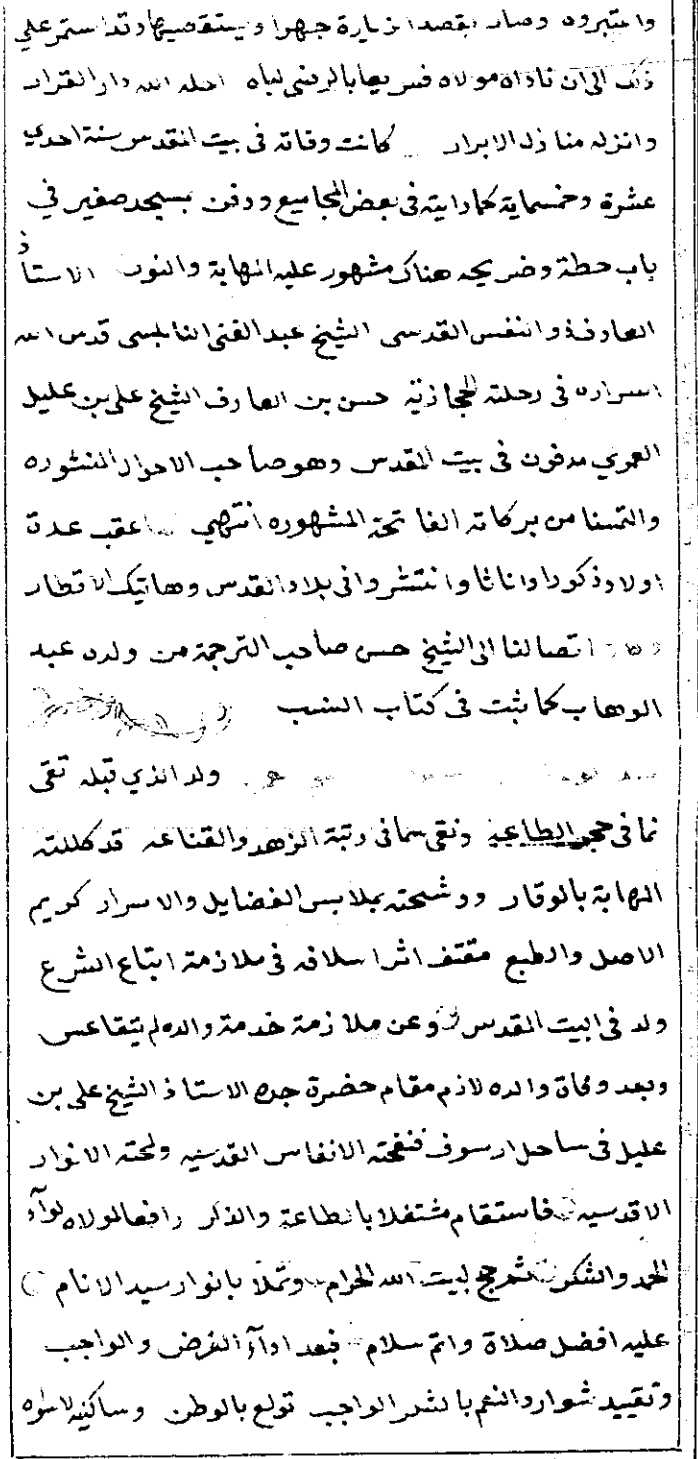 واعتبروه وصار يقصد لزيارة جهرا ويستقصيها وقد استمر على
ذلك الى ان ناداه مولاه فسر بها بالرضى لباه احله الله دار القرار
وانزله منازل الابرار كانت وفاته فى بيت المقدس سنة احدي
عشرة وخمسماية كما رايته فى بعض المجاميع ودفن بمسجد صغير في
باب حطة وضريحه هناك مشهور عليه المهابة والنور الاستاذ
العارف ذو النفس القدسى الشيخ عبد الغنى النابلسى قدس الله
اسراره فى رحلته الحجازية حسن بن العارف الشيخ على بن عليل
العمري مدفون فى بيت المقدس وهو صاحب الاحوال المنشوره
والتمسنا من بركاته الفاتحة المشهوره انتهي اعقب عدة
اولاد ذكورا واناثا وانتشروا فى بلاد القدس وهاتيك الاقطار
اتصالنا الى الشيخ حسن صاحب الترجمة من ولده عبد
الوهاب كما ثبت فى كتاب النسب
ولد الذي قبله تقى
نما فى حجر الطاعة ونقى سما فى رتبة الزهد والقناعه قد كللته
المهابة بالوقار ووشحته بملابس الفضايل والاسرار كريم
الاصل والطبع مقتف اثر اسلافه فى ملازمة اتباع الشرع
ولد فى البيت المقدس وعن ملازمة خدمة والده لم يتقاعس
وبعد وفاة والده لازم مقام حضرة جده الاستاذ الشيخ على بن
عليل فى ساحل ارسوف فنفحته الانفاس القدسيه ولمحته الانوار
الاقدسيه فاستقام مشتغلا بالطاعة والذكر رافعا لمولاه لوآء
الحمد والشكر ثم حج لبيت الله الحرام وتملا بانوار سيد الانام
عليه افضل صلاة واتم سلام فبعد ادآء الفرض والواجب
وتقييد شوارد النعم بالشكر الواجب تولع بالوطن وساكنيه